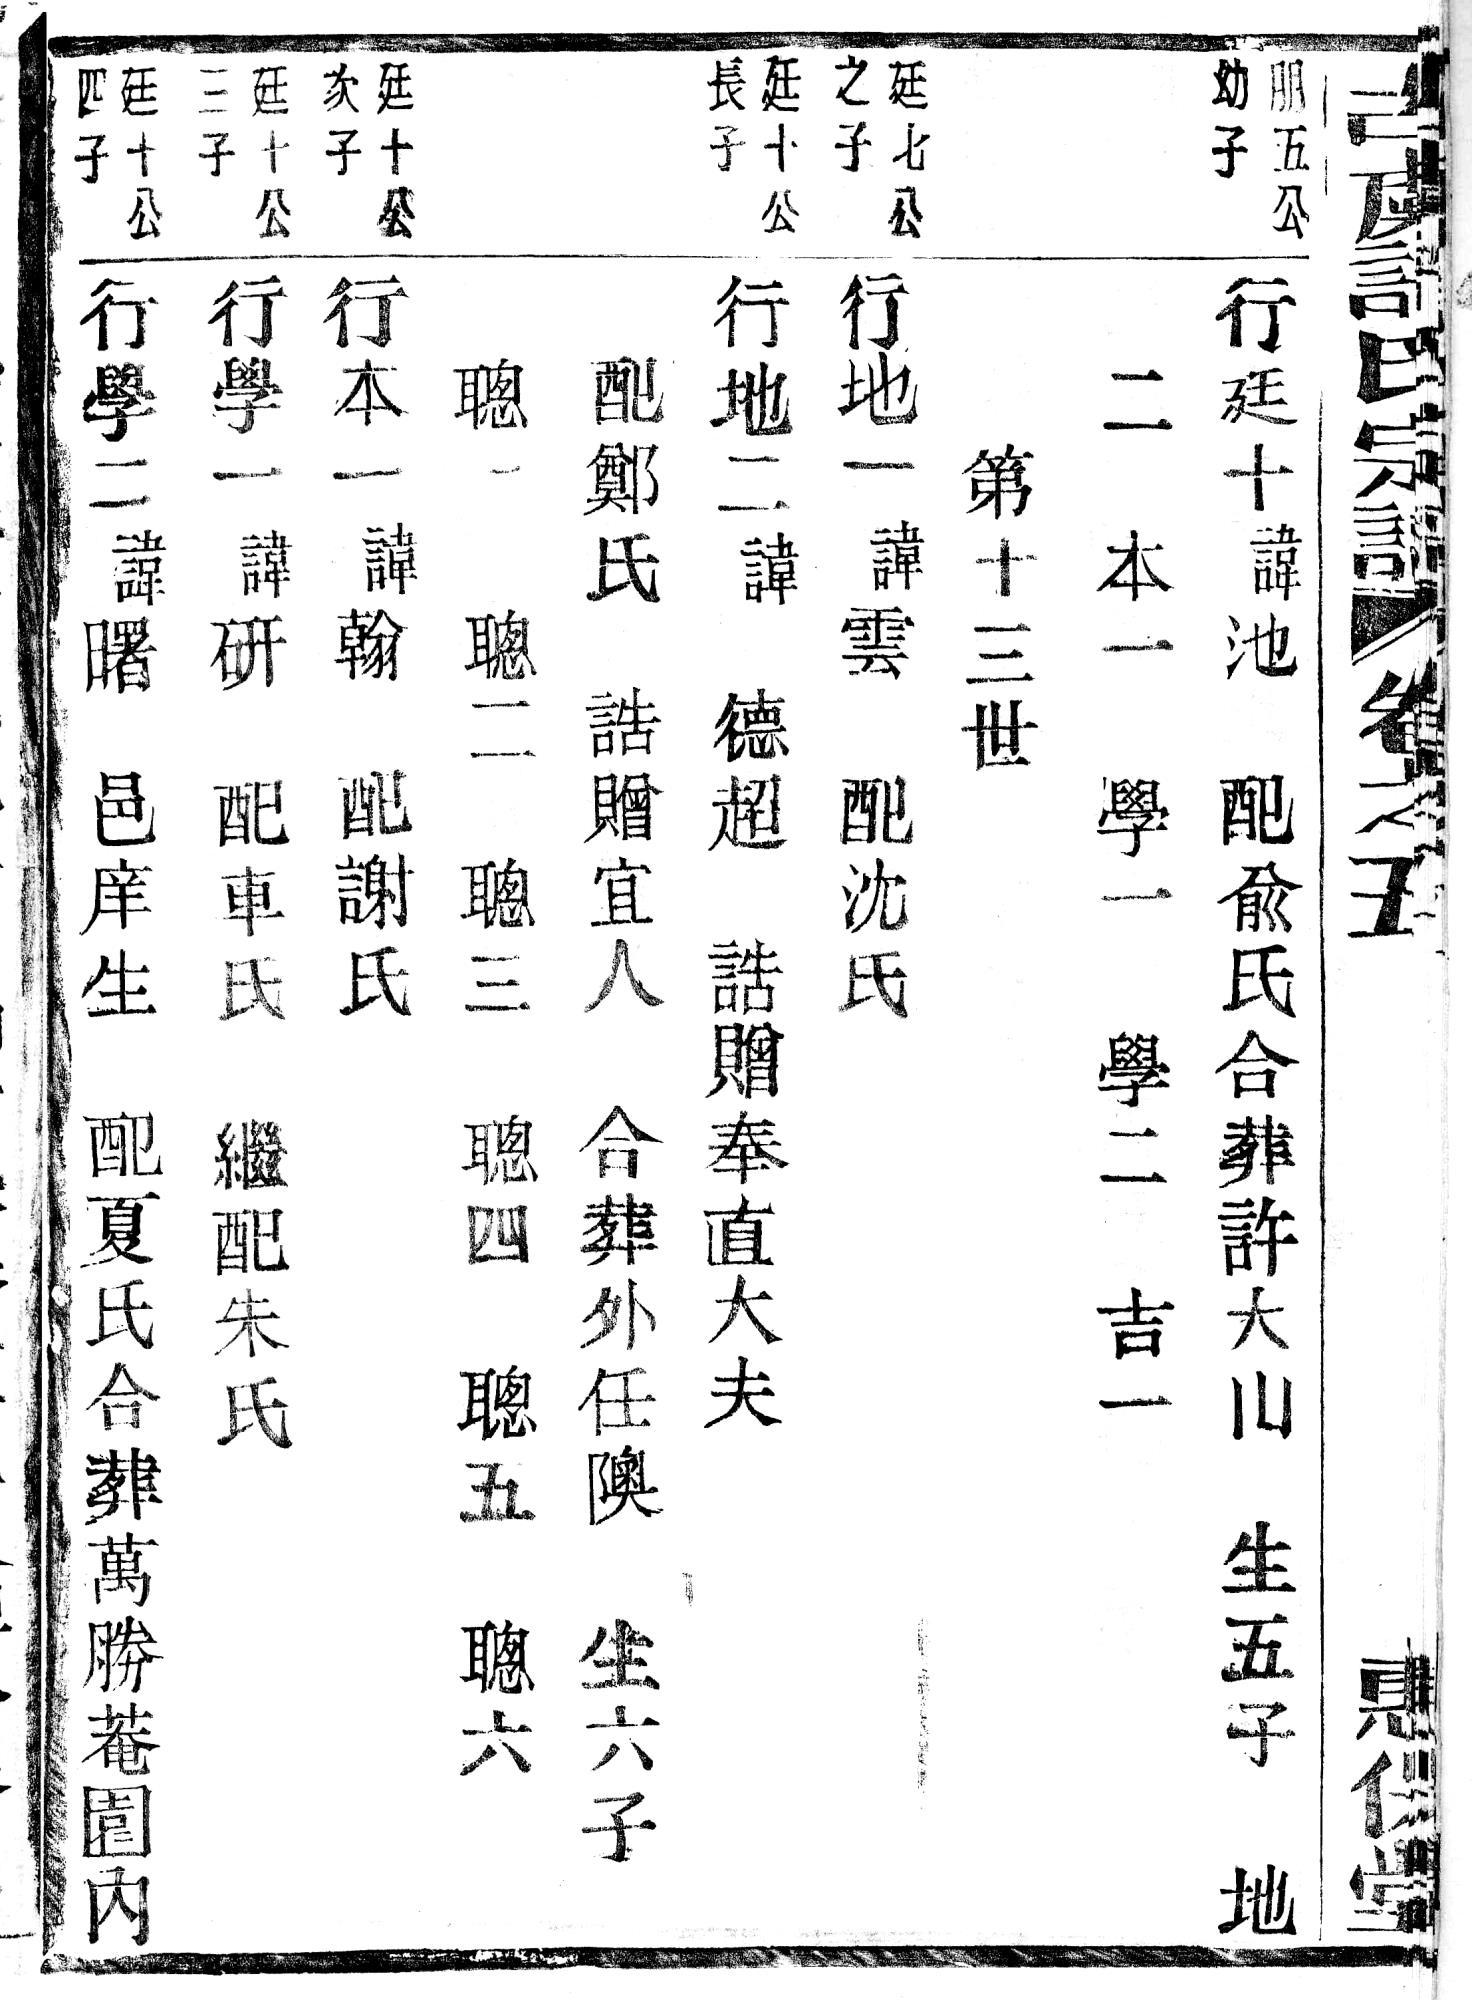 古虞許氏宗譜 卷之五
朋五公
幼子
行廷十諱池 配俞氏合葬許大山 生五子 地
二 本一 學一 學二 吉一
第十三世
廷七公
之子
行地一諱雲 配沈氏
廷十公
長子
行地二諱 德超 誥贈奉直大夫
配鄭氏 誥贈宜人 合葬外任隩 生六子
聰一 聰二 聰三 聰四 聰五 聰六
廷十公
次子
行本一諱翰 配謝氏
廷十公
三子
行學一諱研 配車氏 繼配朱氏
廷十公
四子
行學二諱曙 邑庠生 配夏氏合葬萬勝菴園內